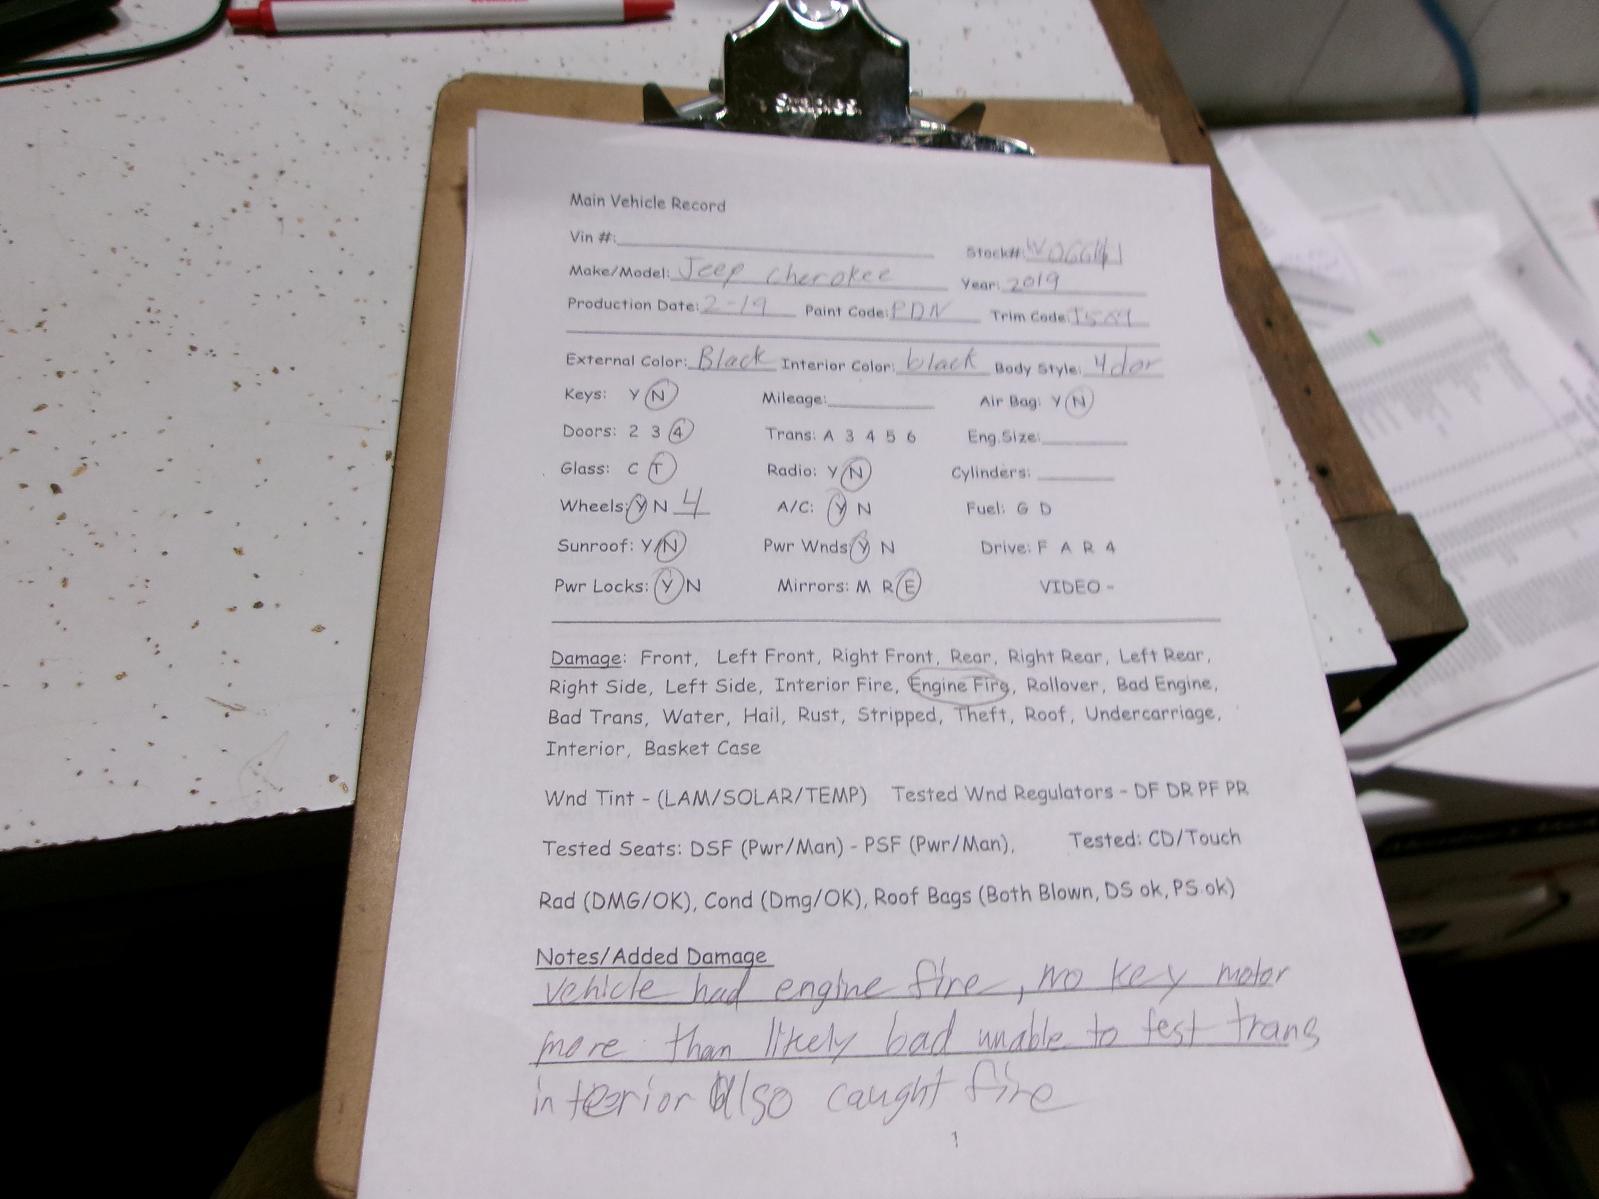 Staples
Main Vehicle Record
Vin #:
Stock#:
Make/Model: Jeep cherokee Year: 2019
Production Date: 2-19 Paint Code: PDN Trim Code:
External Color: Black Interior Color: black Body Style: 4dor
Keys: Y N Mileage: Air Bag: Y N
Doors: 2 3 4 Trans: A 3 4 5 6 Eng.Size:
Glass: C T Radio: Y N Cylinders:
Wheels: Y N 4 A/C: Y N Fuel: G D
Sunroof: Y N Pwr Wnds Y N Drive: F A R 4
Pwr Locks: Y N Mirrors: M R E VIDEO -
Damage: Front, Left Front, Right Front, Rear, Right Rear, Left Rear,
Right Side, Left Side, Interior Fire, Engine Fire, Rollover, Bad Engine,
Bad Trans, Water, Hail, Rust, Stripped, Theft, Roof, Undercarriage,
Interior, Basket Case
Wnd Tint - (LAM/SOLAR/TEMP) Tested Wnd Regulators - DF DR PF PR
Tested Seats: DSF (Pwr/Man) - PSF (Pwr/Man), Tested: CD/Touch
Rad (DMG/OK), Cond (Dmg/OK), Roof Bags (Both Blown, DS ok, PS ok)
Notes/Added Damage
vehicle had engine fire, no key motor
more than likely bad unable to test trans
interior also caught fire
1